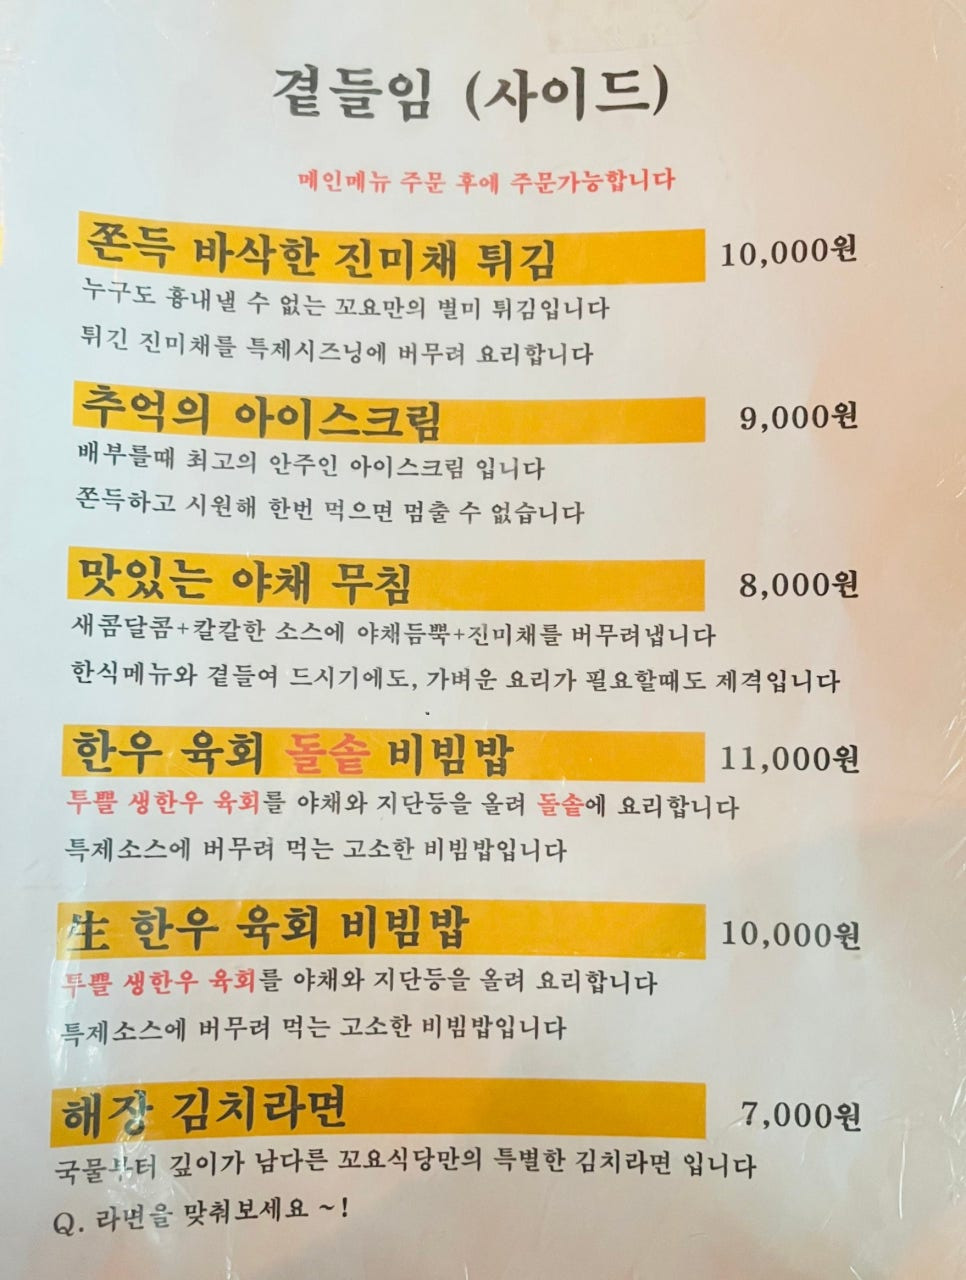 곁들임 (사이드)
메인메뉴 주문 후에 주문가능합니다
쫀득 바삭한 진미채 튀김 10,000원
누구도 흉내낼 수 없는 꼬요만의 별미 튀김입니다
튀긴 진미채를 특제시즈닝에 버무려 요리합니다
추억의 아이스크림 9,000원
배부를때 최고의 안주인 아이스크림 입니다
쫀득하고 시원해 한번 먹으면 멈출 수 없습니다
맛있는 야채 무침 8,000원
새콤달콤+칼칼한 소스에 야채듬뿍+진미채를 버무려냅니다
한식메뉴와 곁들여 드시기에도, 가벼운 요리가 필요할때도 제격입니다
한우 육회 돌솥 비빔밥 11,000원
투쁠 생한우 육회를 야채와 지단등을 올려 돌솥에 요리합니다
특제소스에 버무려 먹는 고소한 비빔밥입니다
生 한우 육회 비빔밥 10,000원
투쁠 생한우 육회를 야채와 지단등을 올려 요리합니다
특제소스에 버무려 먹는 고소한 비빔밥입니다
해장 김치라면 7,000원
국물부터 깊이가 남다른 꼬요식당만의 특별한 김치라면 입니다
Q. 라면을 맞춰보세요 ~!